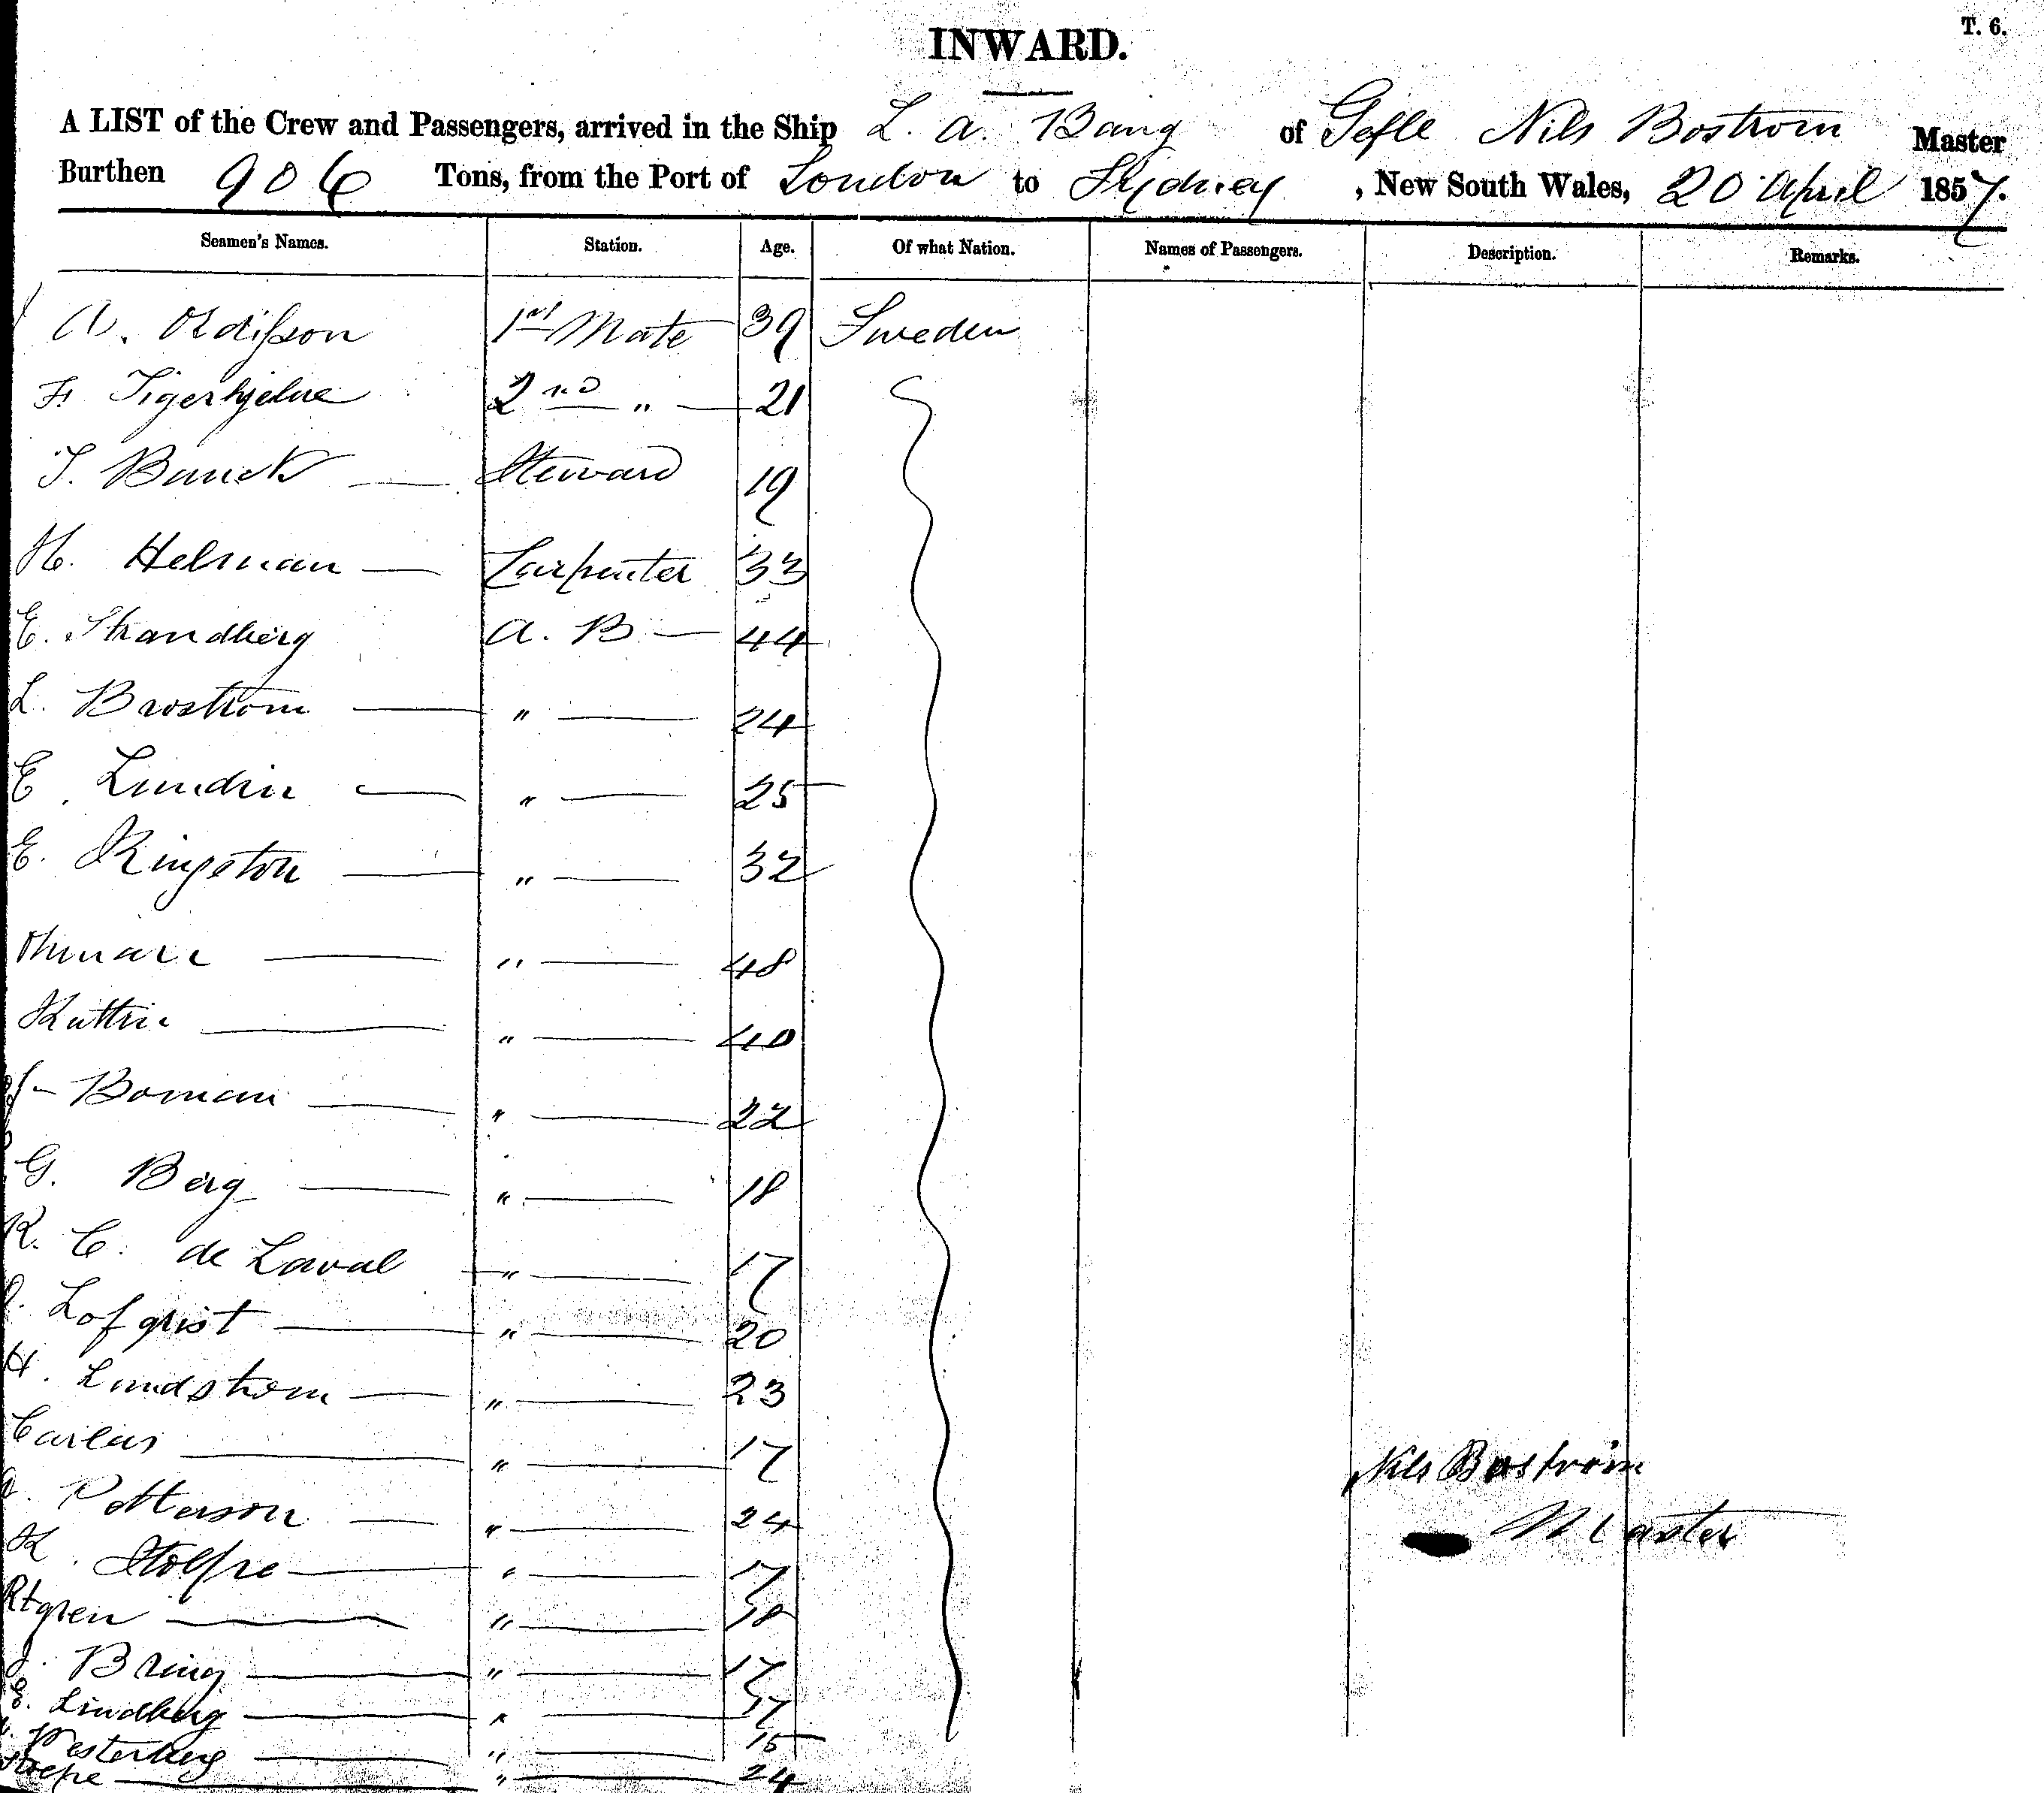 T. 6.
INWARD.
A LIST of the Crew and Passengers, arrived in the Ship L. A. Bang of Gefle Nils Bostrom Master
Burthen 906 Tons, from the Port of London to Sydney, New South Wales, 20 April 1857.
Seamen's Names. Station. Age. Of what Nation. Names of Passengers. Description. Remarks.
A. 1st Mate 39 Sweden
F. Tigerhjelm 2nd " 21
Steward 19
H. Helman Carpenter 33
E. Strandberg A. B 44
L. Brostrom " 24
E. Lundin " 25
E. Kingston " 32
" 48
" 40
Boman " 22
G. Berg " 18
R. C. de Laval " 17
Lofquist " 20
H. Lundstrom " 23
" 17
Nils Boström
Petterson " 24
Master
K. Stolpe " 17
" 18
Bring " 17
E. Lindberg " 17
Westerberg " 15
" 24